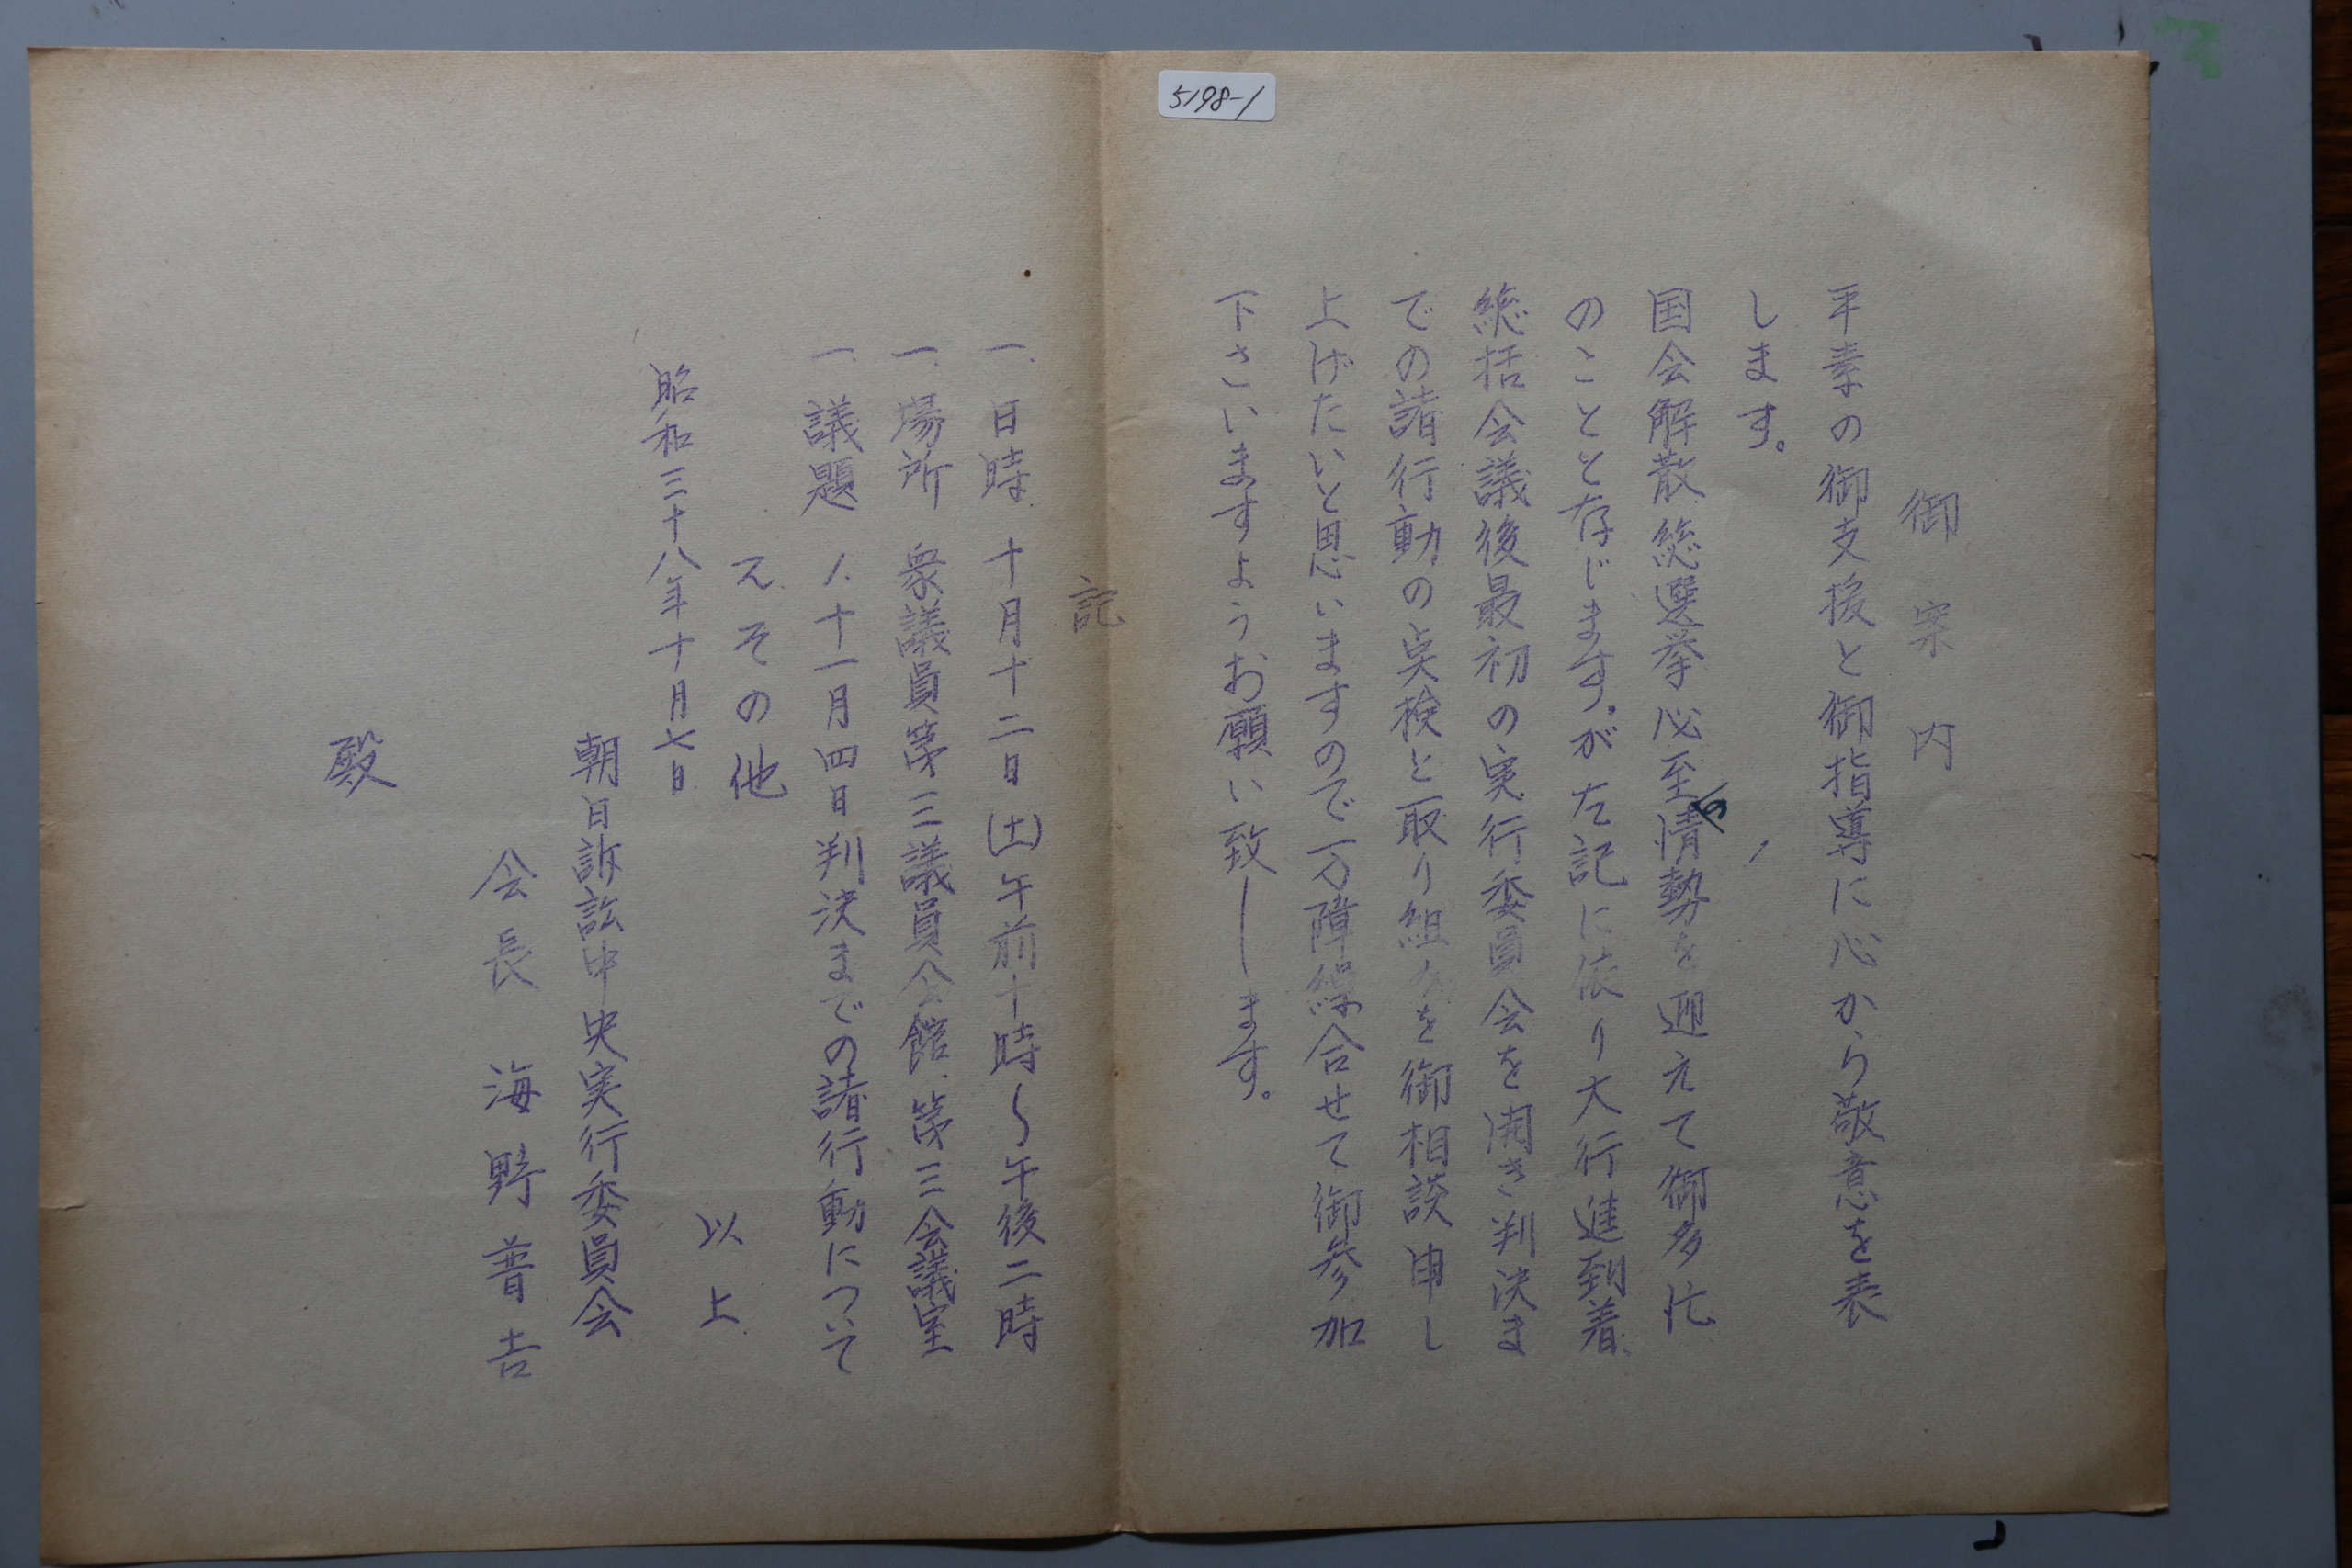 5198-1
御案内
平素の御支援と御指導に心から敬意を表
します。
国会解散総選挙必至の情勢を迎えて御多忙
のことと存じます。が左記に依り大行進到着
総括会議後最初の実行委員会を開き判決ま
での諸行動の点検と取り組みを御相談申し
上げたいと思いますので万障繰合せて御参加
下さいますようお願い致します。
記
一、日時 十月十二日(土)午前十時〜午後二時
一、場所 衆議員第三議員会館、第三会議室
一、議題 1.十一月四日判決までの諸行動について
2.その他
以上
昭和三十八年十月七日
朝日訴訟中央実行委員会
会長 海野普吉
殿